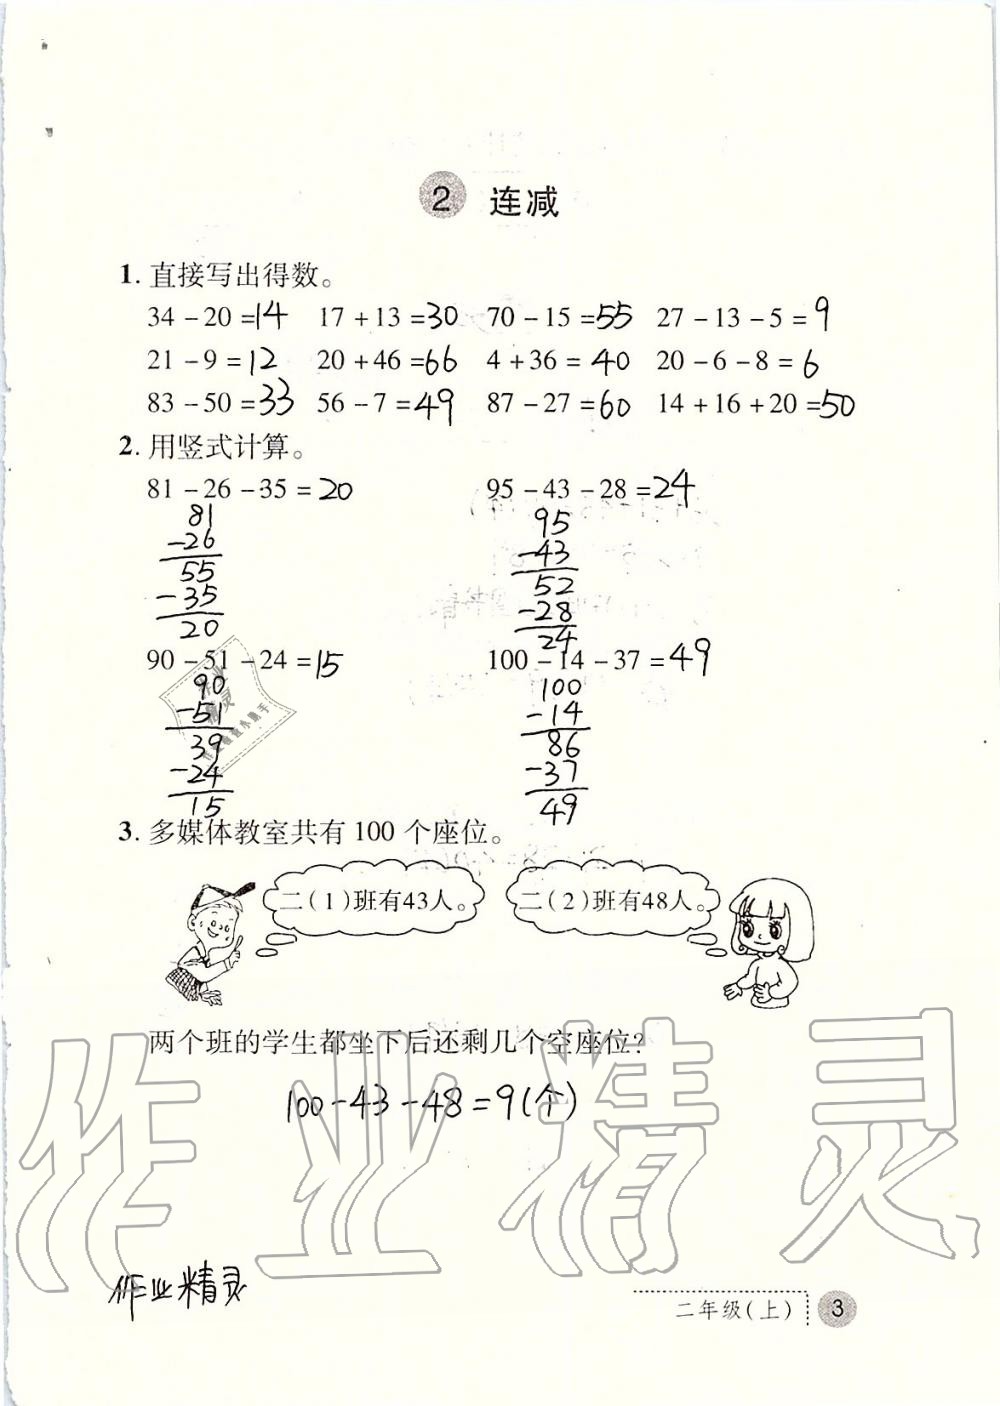 2 连减
1. 直接写出得数。
34－20=14 17＋13=30 70－15=55 27－13－5=9
21－9=12 20＋46=66 4＋36=40 20－6－8=6
83－50=33 56－7=49 87－27=60 14＋16＋20=50
2. 用竖式计算。
81－26－35=20 95－43－28=24
81 95
－26 －43
55 52
－35 －28
20 24
90－51－24=15 100－14－37=49
90 100
－51 －14
39 86
－24 －37
15 49
3. 多媒体教室共有100个座位。
二(1)班有43人。 二(2)班有48人。
两个班的学生都坐下后还剩几个空座位?
100－43－48=9(个)
作业精灵
作业精灵
二年级(上) 3